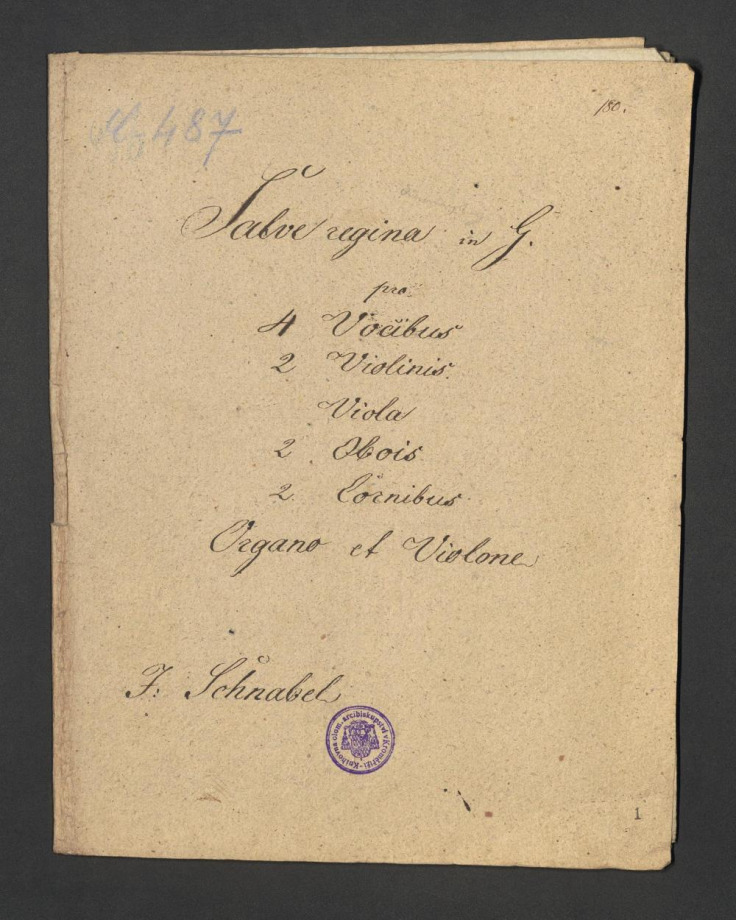 487
180.
Salve regina in G.
pro
4 Vocibus
2 Violinis.
Viola
2 Obois
2. Cornibus
Organo et Violone
F. Schnabel
Knihovna olom. arcibiskupství v Kroměříži
1